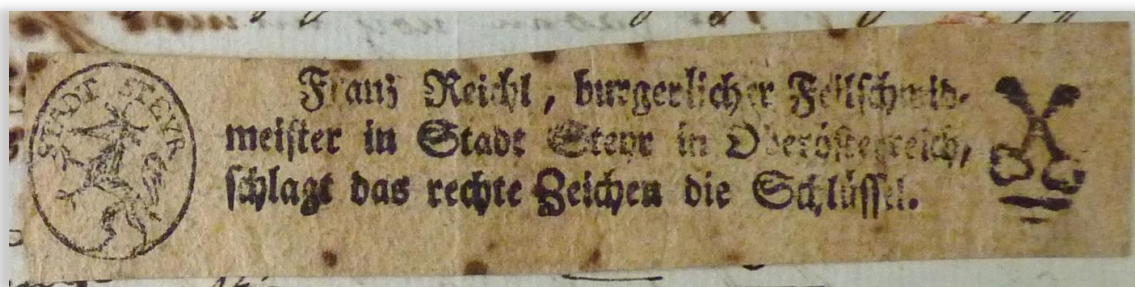 STADT STEYR
Franz Reichl, burgerlicher Feilschmid-
meister in Stadt Steyr in Oberösterreich,
schlagt das rechte Zeichen die Schlüssel.